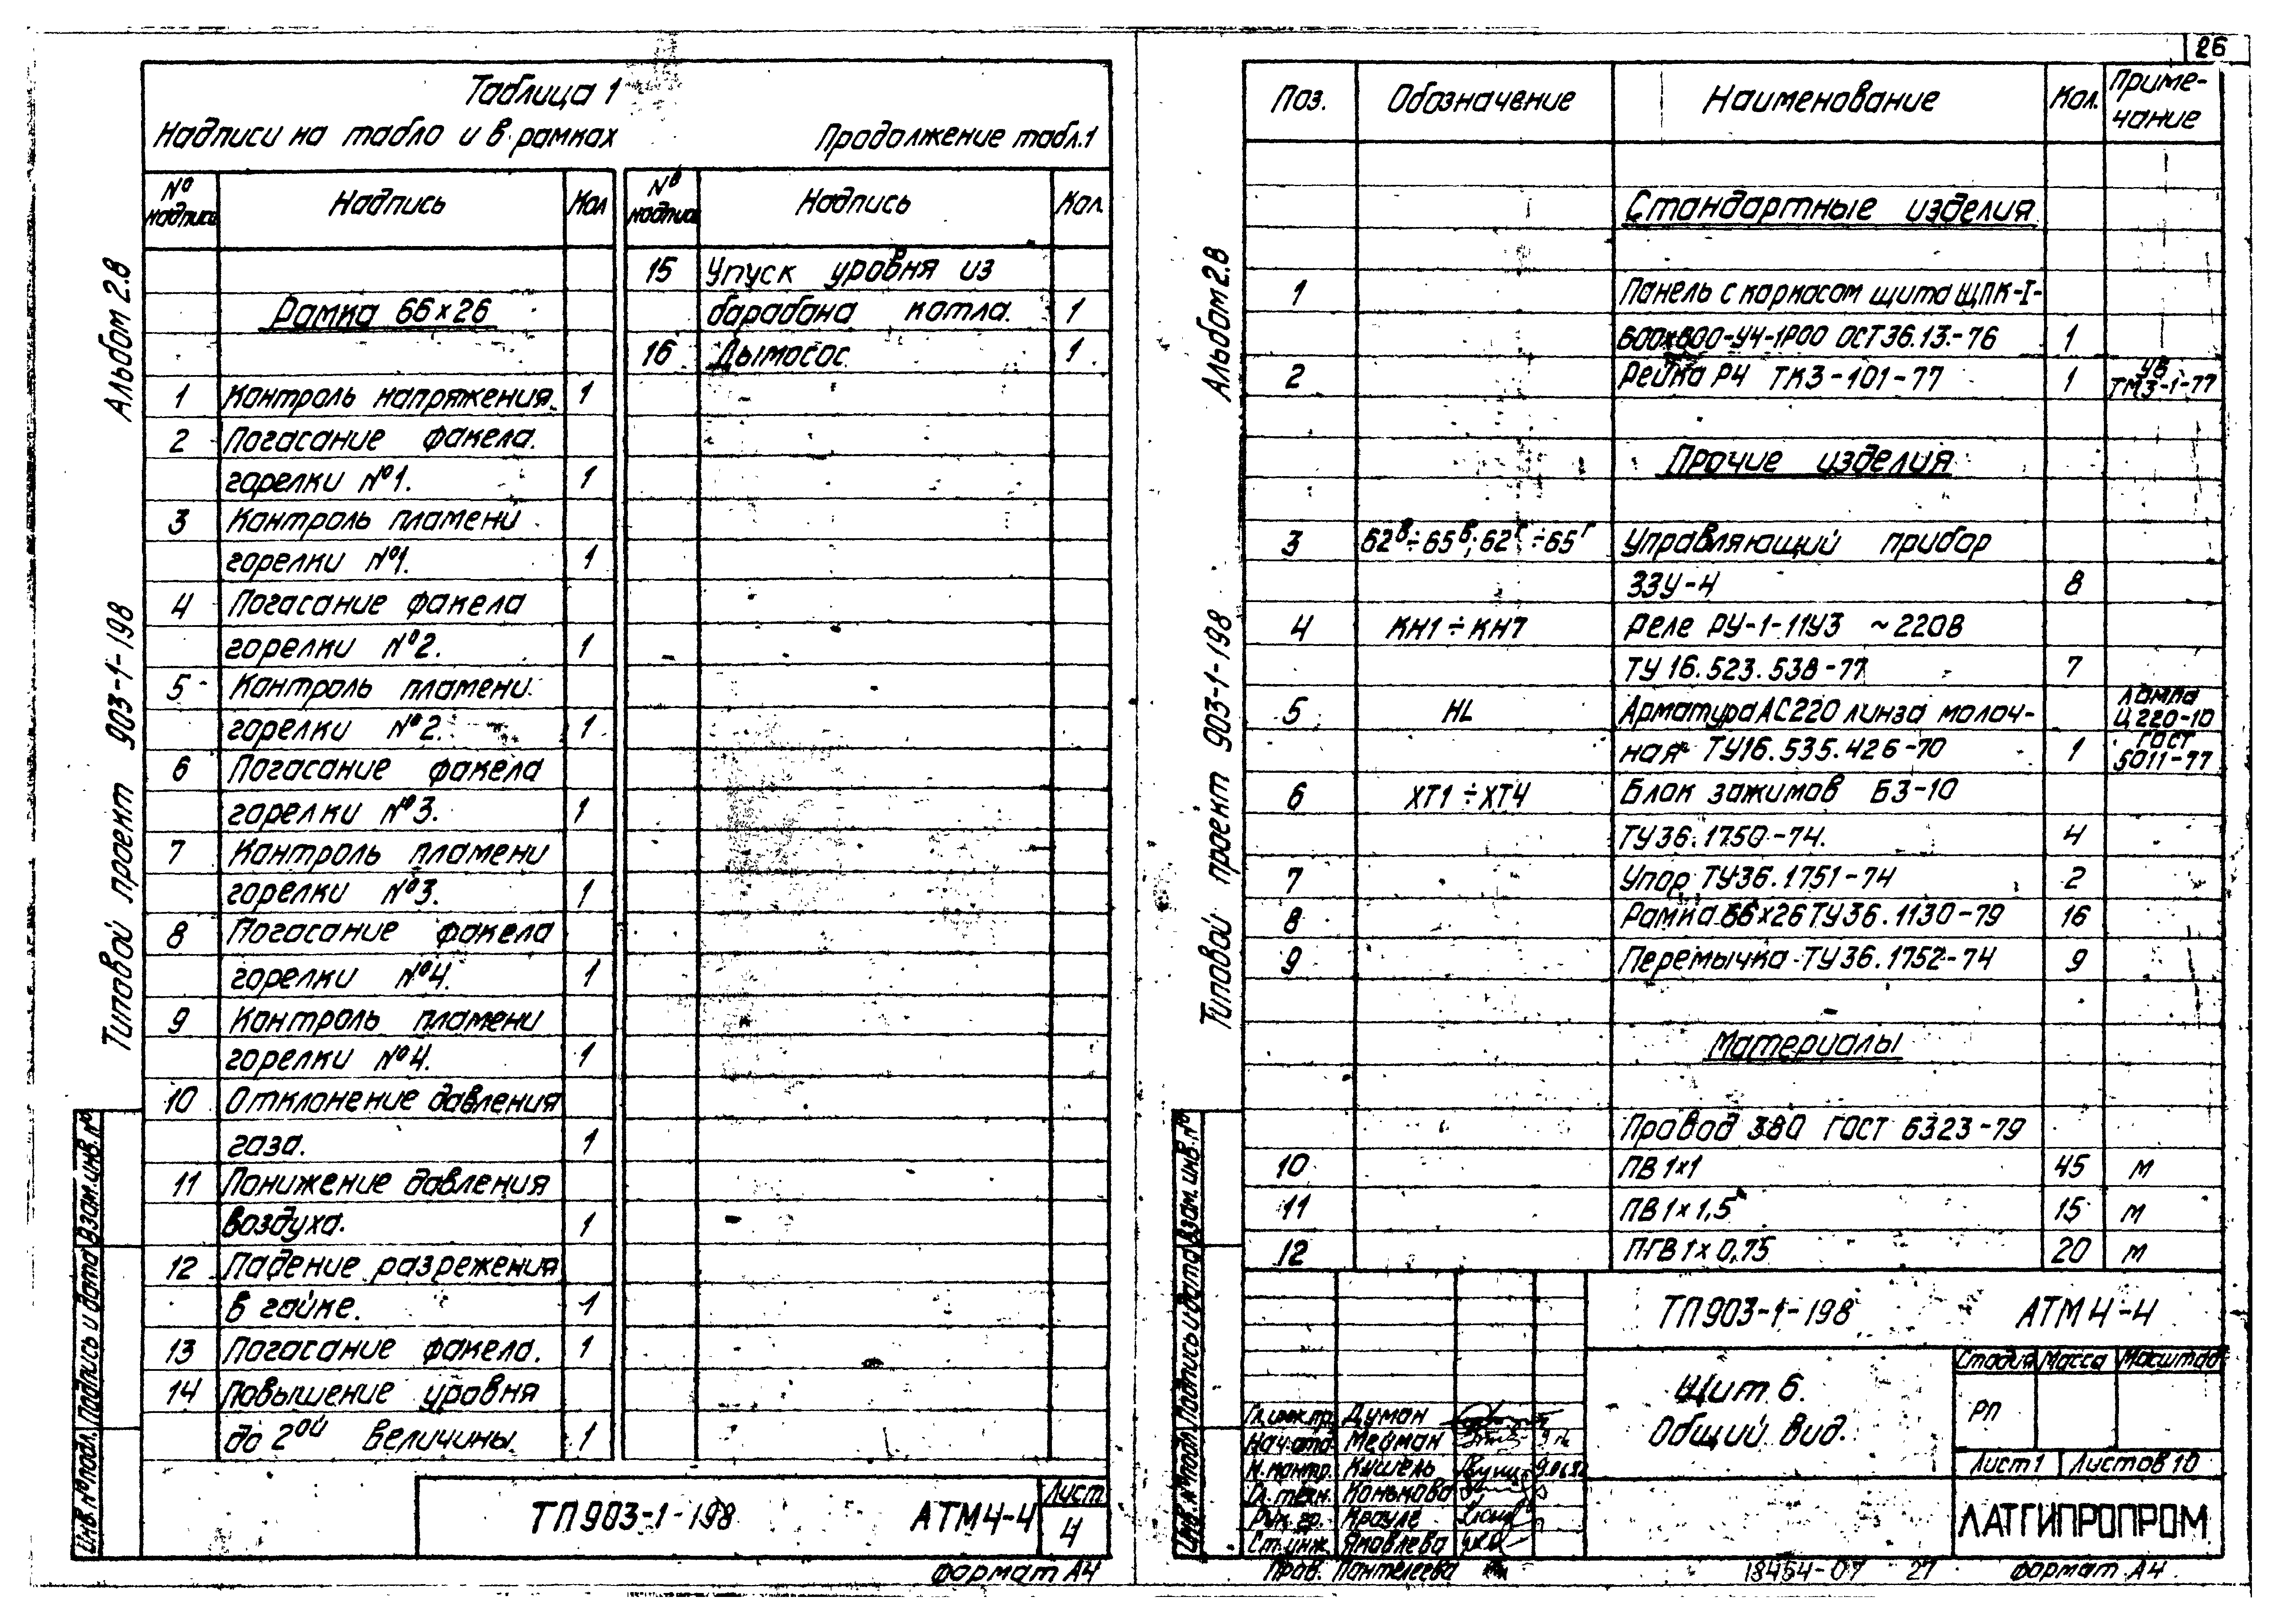 26
Таблица 1
Надписи на табло и в рамках
Продолжение табл.1
№ надписи Надпись Кол
№ надписи Надпись Кол.
Рамка 66×26
1 Контроль напряжения. 1
2 Погасание факела.
горелки №1. 1
3 Контроль пламени
горелки №1. 1
4 Погасание факела
горелки №2. 1
5 Контроль пламени.
горелки №2. 1
6 Погасание факела
горелки №3. 1
7 Контроль пламени
горелки №3. 1
8 Погасание факела
горелки №4. 1
9 Контроль пламени
горелки №4. 1
10 Отклонение давления
газа. 1
11 Понижение давления
воздуха. 1
12 Падение разрежения
в гайке. 1
13 Погасание факела. 1
14 Повышение уровня
до 2ой величины 1
15 Упуск уровня из
барабана котла. 1
16 Дымосос 1
Альбом 2.8
Типовой проект 903-1-198
Взам.инв.№
Подпись и дата
Инв.№подл.
ТП903-1-198 АТМ4-4
Лист
4
формат А4
Поз. Обозначение Наименование Кол. Приме-
чание
Стандартные изделия
1 Панель с каркасом щита ЩПК-I-
600х600-У4-1Р00 ОСТ36.13.-76 1
2 Рейка Р4 ТК3-101-77 1 ТМ3-1-77
Прочие изделия
3 62в÷65в; 62г÷65г Управляющий прибор
ЗЗУ-4 8
4 КН1÷КН7 Реле РУ-1-11У3 ~220В
ТУ16.523.538-77 7
5 HL Арматура АС220 линза молоч-
ная ТУ16.535.426-70 1
лампа
Ц220-10
ГОСТ
5011-77
6 ХТ1÷ХТ4 Блок зажимов БЗ-10
ТУ36.1750-74. 4
7 Упор ТУ36.1751-74 2
8 Рамка 66×26 ТУ36.1130-79 16
9 Перемычка ТУ36.1752-74 9
Материалы
Провод 380 ГОСТ 6323-79
10 ПВ 1×1 45 м
11 ПВ 1×1,5 15 м
12 ПГВ 1×0,75 20 м
Альбом 2.8
Типовой проект 903-1-198
Взам.инв.№
Подпись и дата
Инв.№подл.
ТП903-1-198 АТМ4-4
Щит 6.
Общий вид.
Стадия Масса Масштаб
РП
Лист 1 Листов 10
ЛАТГИПРОПРОМ
Гл.инж.пр. Думан
Нач.отд. Мейман
Н.контр. Кушель
Гл.техн. Конькова
Рук.гр. Крауле
Ст.инж. Яковлева
Пров. Пантелеева
18454-07 27
формат А4